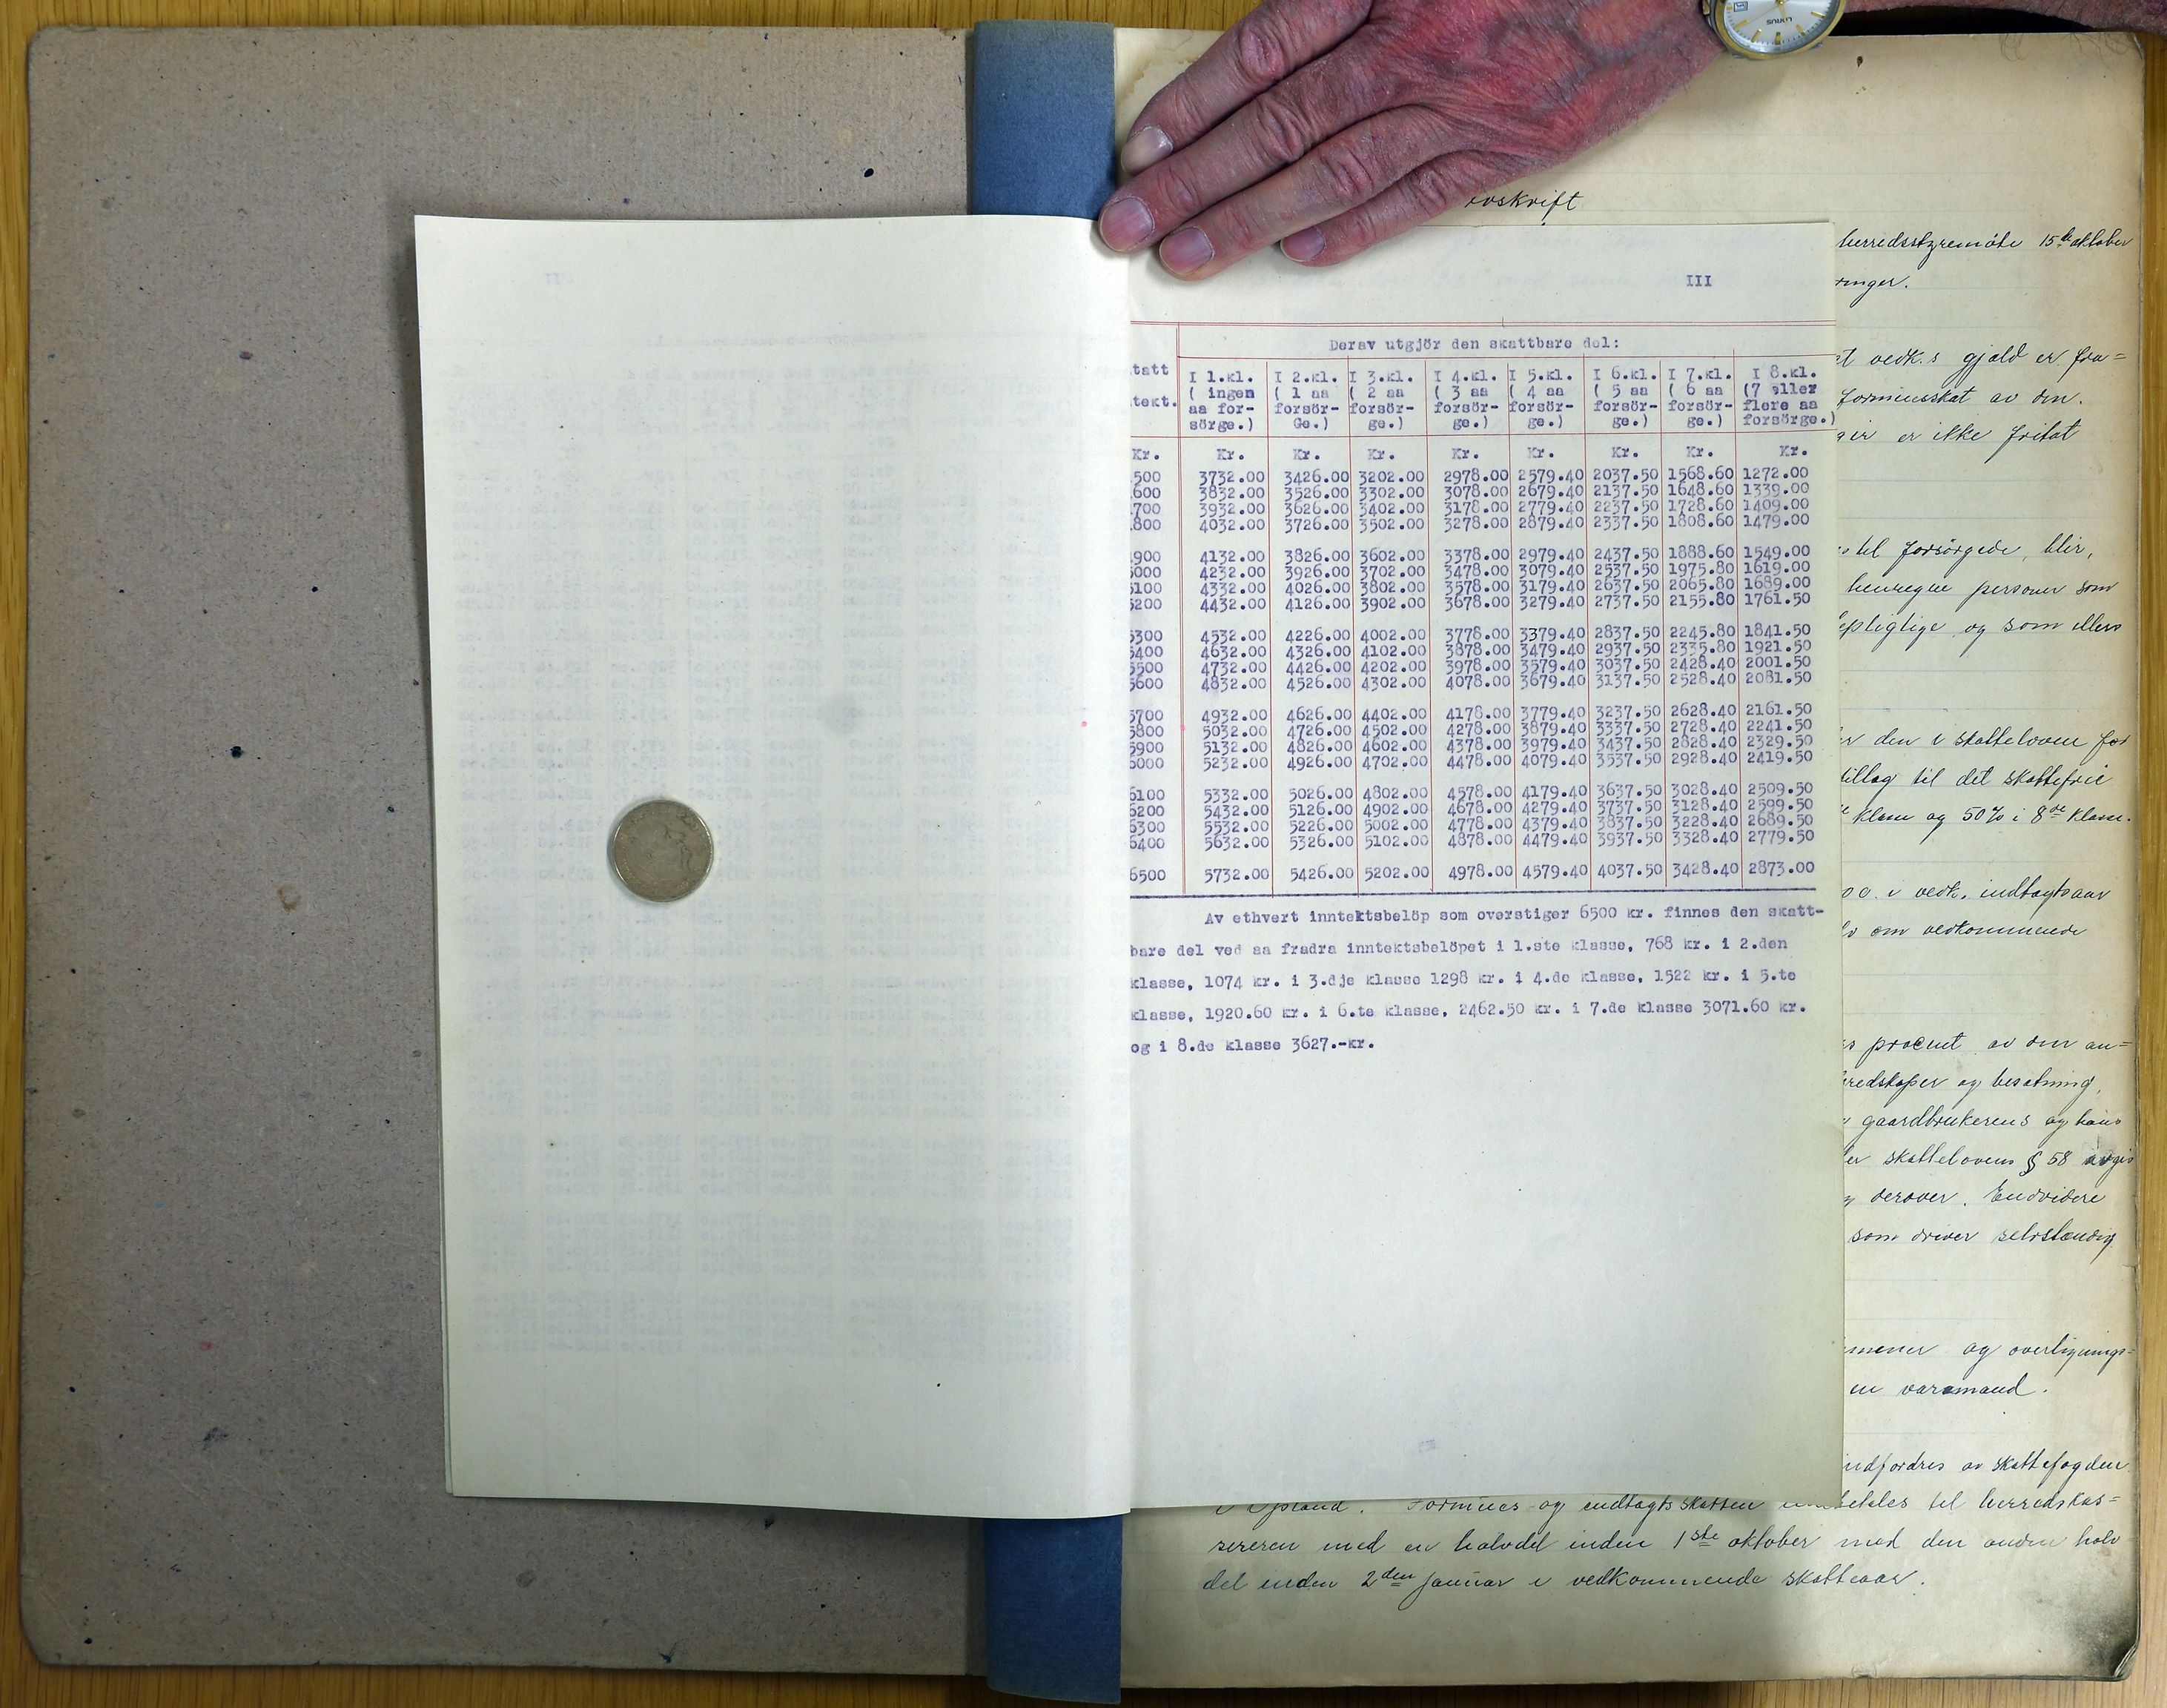 avskrift
herredsstyremöte 15de oktober
III
Derav utgjör den skattbare del:
tatt
tekt.
I 1.kl. I 2.kl. I 3.kl. I 4.kl. I 5.kl. I 6.kl. I 7.kl. I 8.kl.
( ingen ( 1 aa ( 2 aa ( 3 aa ( 4 aa ( 5 aa ( 6 aa (7 eller
aa for- forsör- forsör- forsör- forsör- forsör- forsör- flere aa
sörge.) Ge.) ge.) ge.) ge.) ge.) ge.) forsörge.)
Kr. Kr. Kr. Kr. Kr. Kr. Kr. Kr. Kr.
500 3732.00 3426.00 3202.00 2978.00 2579.40 2037.50 1568.60 1272.00
600 3832.00 3526.00 3302.00 3078.00 2679.40 2137.50 1648.60 1339.00
700 3932.00 3626.00 3402.00 3178.00 2779.40 2237.50 1728.60 1409.00
800 4032.00 3726.00 3502.00 3278.00 2879.40 2337.50 1808.60 1479.00
900 4132.00 3826.00 3602.00 3378.00 2979.40 2437.50 1888.60 1549.00
5000 4232.00 3926.00 3702.00 3478.00 3079.40 2537.50 1975.80 1619.00
5100 4332.00 4026.00 3802.00 3578.00 3179.40 2637.50 2065.80 1689.00
5200 4432.00 4126.00 3902.00 3678.00 3279.40 2737.50 2155.80 1761.50
5300 4532.00 4226.00 4002.00 3778.00 3379.40 2837.50 2245.80 1841.50
5400 4632.00 4326.00 4102.00 3878.00 3479.40 2937.50 2335.80 1921.50
5500 4732.00 4426.00 4202.00 3978.00 3579.40 3037.50 2428.40 2001.50
5600 4832.00 4526.00 4302.00 4078.00 3679.40 3137.50 2528.40 2081.50
5700 4932.00 4626.00 4402.00 4178.00 3779.40 3237.50 2628.40 2161.50
5800 5032.00 4726.00 4502.00 4278.00 3879.40 3337.50 2728.40 2241.50
5900 5132.00 4826.00 4602.00 4378.00 3979.40 3437.50 2828.40 2329.50
6000 5232.00 4926.00 4702.00 4478.00 4079.40 3537.50 2928.40 2419.50
6100 5332.00 5026.00 4802.00 4578.00 4179.40 3637.50 3028.40 2509.50
6200 5432.00 5126.00 4902.00 4678.00 4279.40 3737.50 3128.40 2599.50
6300 5532.00 5226.00 5002.00 4778.00 4379.40 3837.50 3228.40 2689.50
6400 5632.00 5326.00 5102.00 4878.00 4479.40 3937.50 3328.40 2779.50
6500 5732.00 5426.00 5202.00 4978.00 4579.40 4037.50 3428.40 2873.00
Av ethvert inntektsbelöp som overstiger 6500 kr. finnes den skatt-
bare del ved aa fradra inntektsbelöpet i 1.ste klasse, 768 kr. i 2.den
klasse, 1074 kr. i 3.dje klasse 1298 kr. i 4.de klasse, 1522 kr. i 5.te
klasse, 1920.60 kr. i 6.te klasse, 2462.50 kr. i 7.de klasse 3071.60 kr.
og i 8.de klasse 3627.-kr.
ringer.
vedk.s gjæld er fra=
formuesskat av den.
er ikke fritat
til forsörgede, blir,
henregne personer som
og som ellers
den i skatteloven for
tillæg til det skattefrie
klasse og 50% i 8de klasse.
i vedk. indtægtsaar
om vedkommende
procent av den an=
redskaper og besætning,
gaardbrukerens og hans
skattelovens § 58 avgis
derover. Endvidere
som driver selvstændig
og overlignings=
en varamand.
indfordres av skattefogden
i Opland. Formues- og indtægtsskatten indbetales til herredskas=
sereren med en halvdel inden 1ste oktober med den anden halv
del inden 2den januar i vedkommende skatteaar.